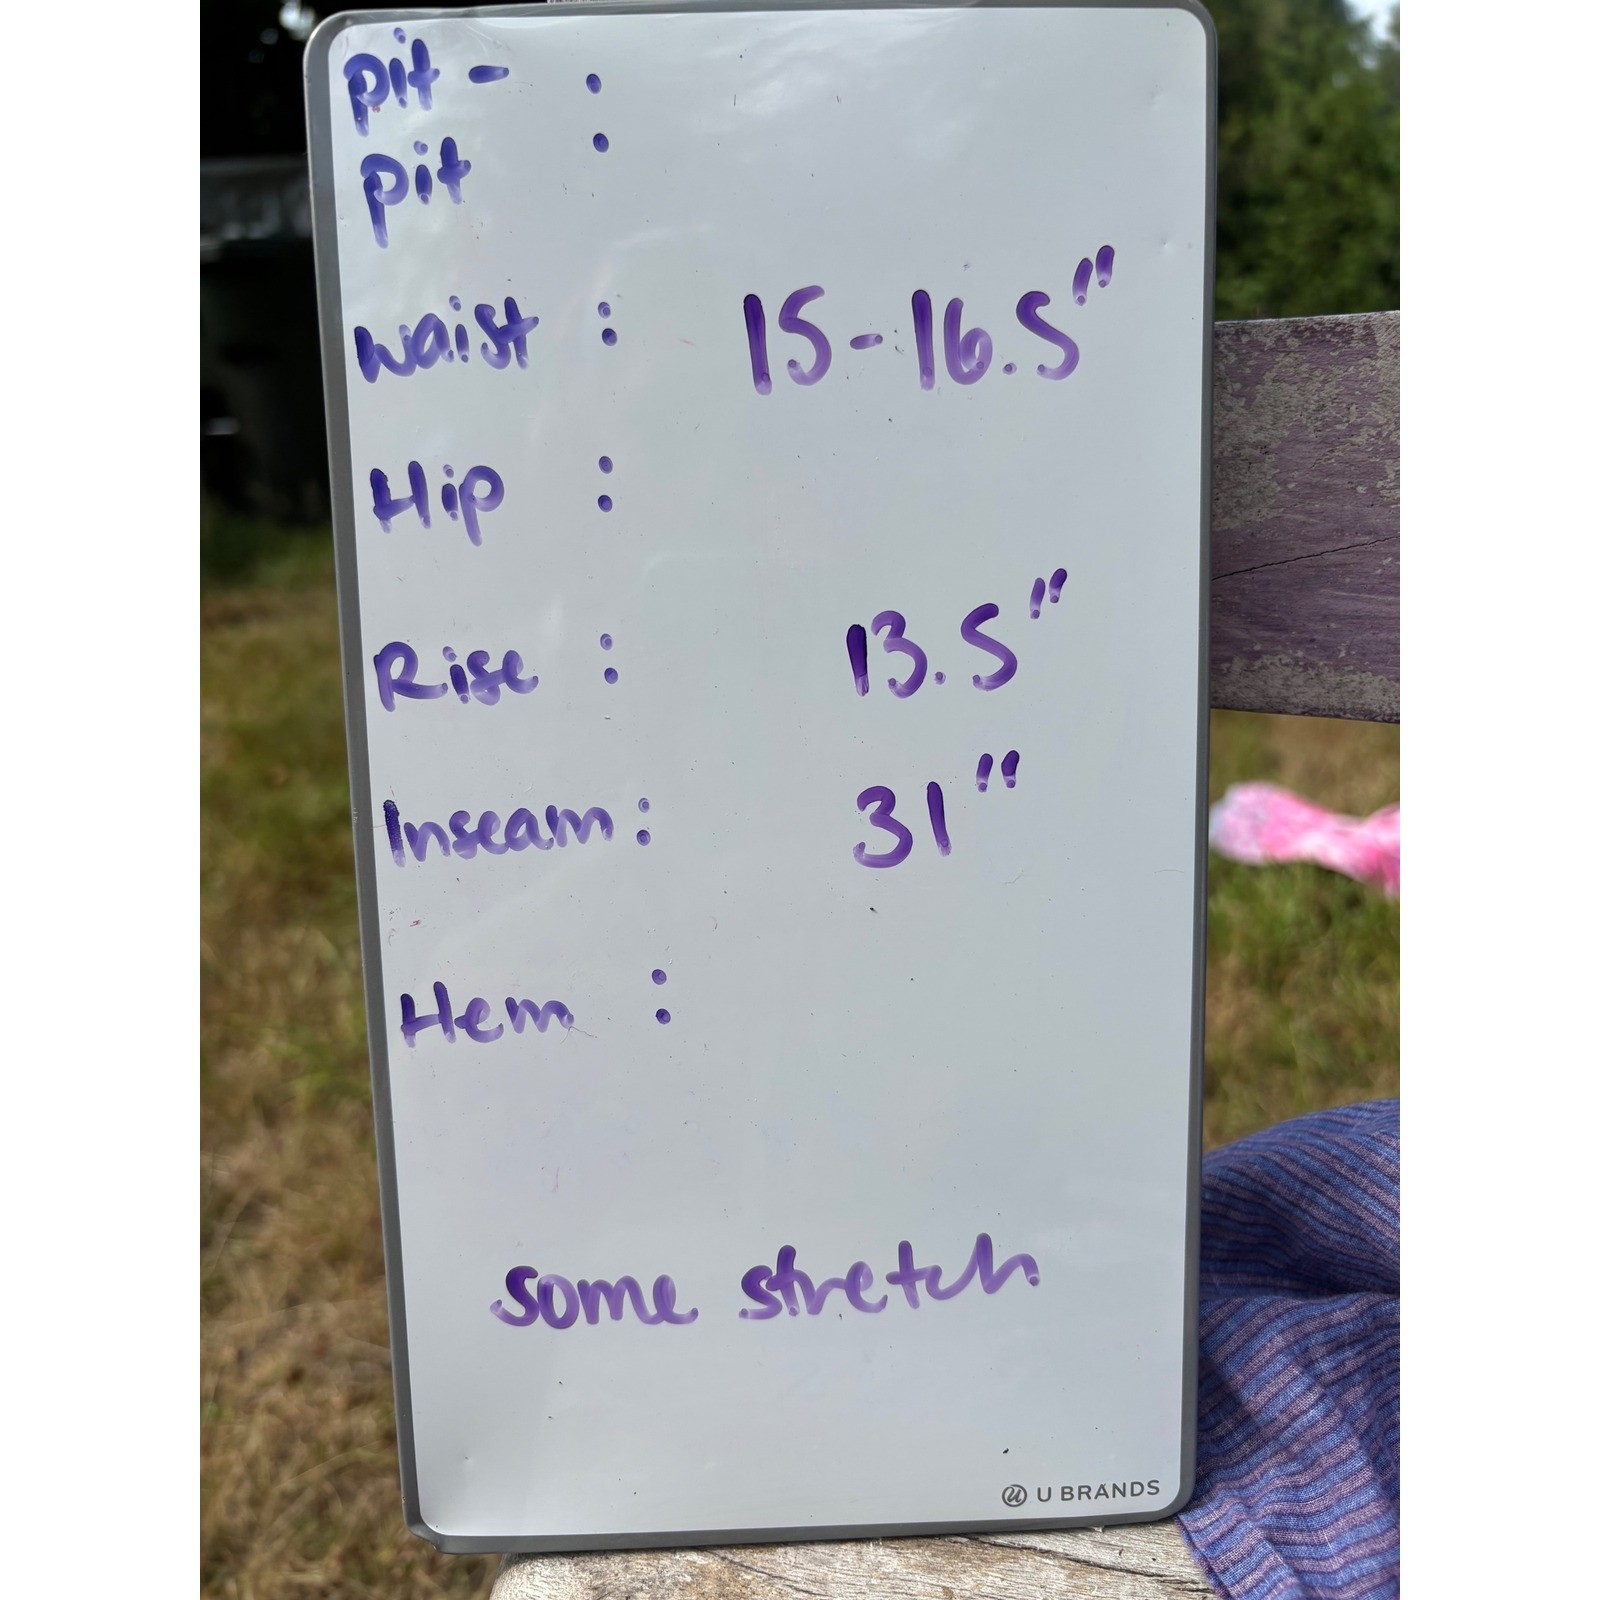 pit - :
pit
waist : 15-16.5"
Hip :
Rise : 13.5"
Inseam : 31"
Hem :
some stretch
U BRANDS